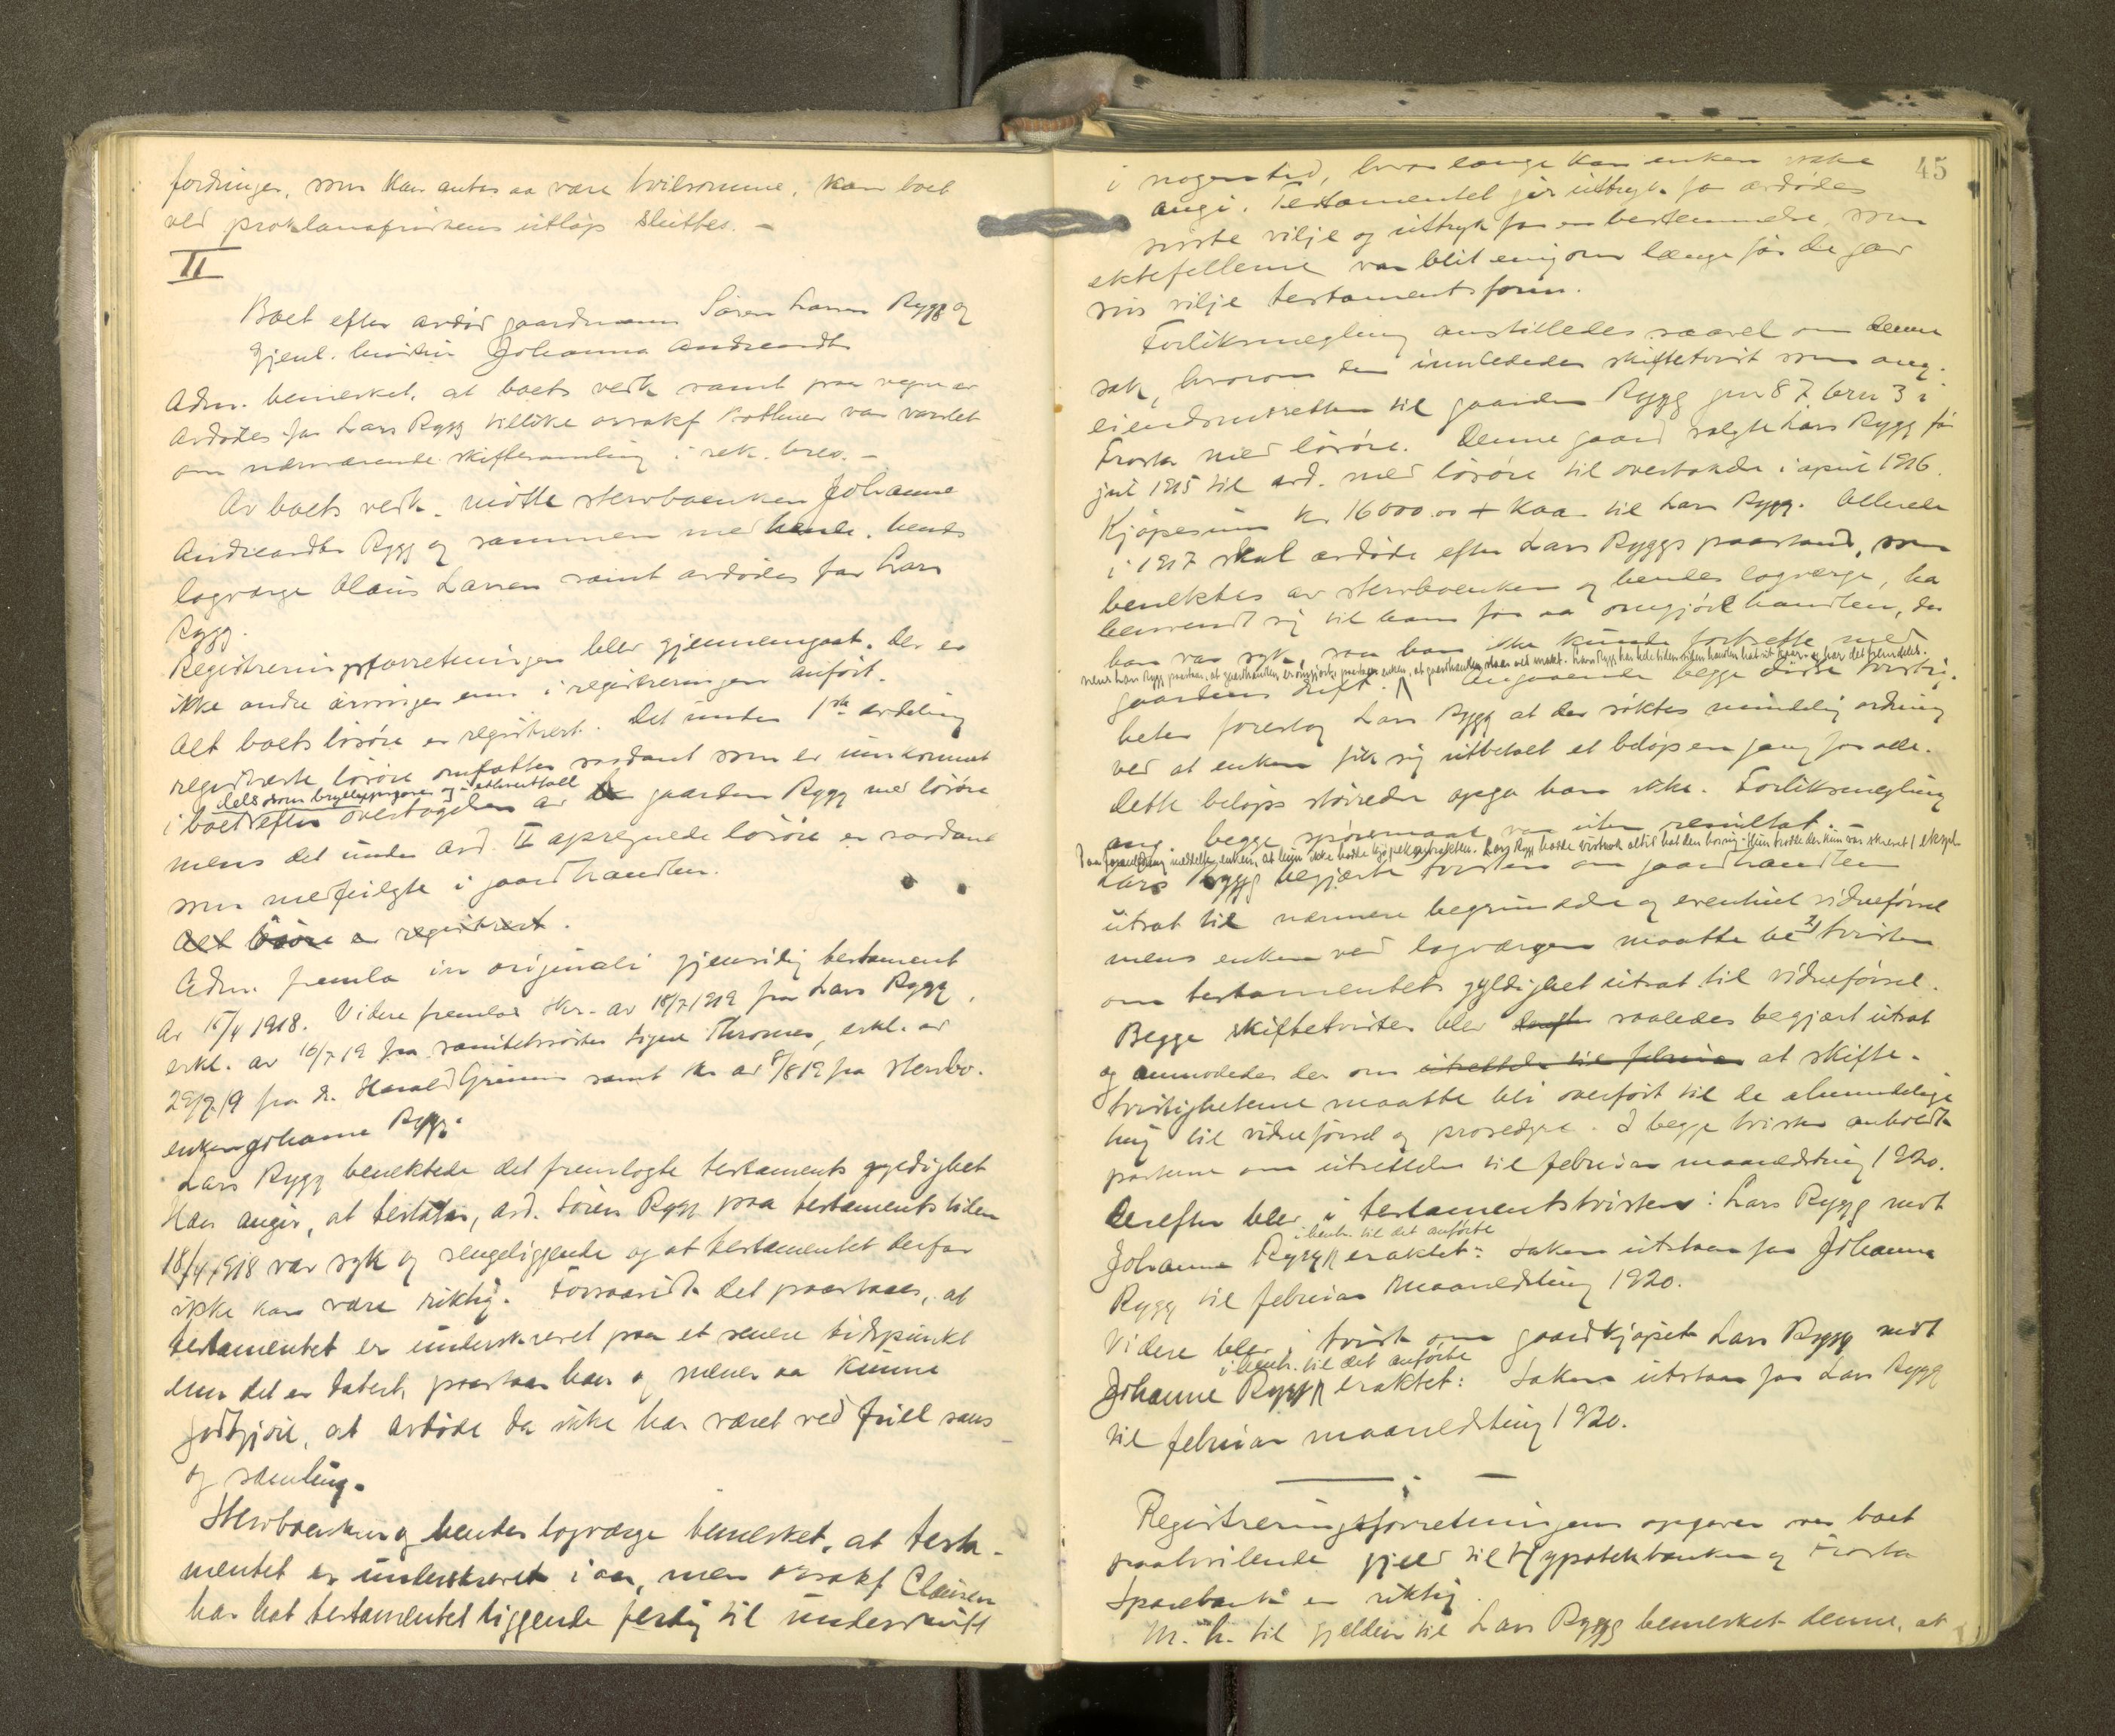 fordringer, som kan antas aa være tvilsomme, kan boet
ved proklamafristens utløp sluttes. -
II
Boet efter avdød gaardmann Søren Larsen Rygg og
gjenl. hustru Johanna Andreasdtr
Adm. bemerket, at boets vedk. samt paa vegne av
avdødes far Lars Rygg tillike o.r.sakf. Bothner var varslet
om nærværende skiftesamling i rek. brev. -
Av boets vedk. møtte sterboenken Johanne
Andreasdtr Rygg og sammen med hende, hendes
lagværge Olaus Larsen samt avdødes far Lars
Rygg.
Registreringsforretningen blev gjennemgaat. Der er
ikke andre arvinger enn i registreringen anført.
Alt boets løsøre er registrert. Det under 1ste avdeling
registrerte løsøre omfatter saadant som er innkommet
dels som bryllupsgaver og i ethvertfall
i boet efter overtagelsen av gaarden Rygg med løsøre
mens det under avd. II opregnede løsøre er saadant
som medfulgte i gaardhandlen.
Alt løsøre er registrert.
Adm. fremla in originali gjensidig testament
av 18/4 1918. Videre fremlaes skr. av 18/7 1919 fra Lars Rygg,
erkl. av 16/7 19 fra sanitetssøster Signe Thrones, erkl. av
29/7 19 fra dr. Harald Grimm samt skr av 8/8 19 fra sterbo-
enken Johanne Rygg.
Lars Rygg benektede det fremlagte testaments gyldighet
Han angir, at testator, avd. Søren Rygg paa testamentstiden
18/4 1918 var syk og sengeliggende og at testamentet derfor
ikke kan være riktig. Forsaavidt det paastaaes, at
testamentet er underskrevet paa et senere tidspunkt
enn det er datert, paastaar han og mener aa kunne
godtgjøre, at avdøde da ikke har været ved full sans
og samling.
Sterboenken og hendes lagværge bemerket, at testa-
mentet er underskrevet i aar, men o.r.sakf. Clausen
har hat testamentet liggende ferdig til underskrift
45
i nogen tid, hvor længe kan enken ikke
angi. Testamentet gir uttryk for avdødes
siste vilje og uttryk for en bestemmelse, som
ektefellerne var blit enig om længe før de gav
sin vilje testamentsform.
Forliksmegling anstilledes saavel om denne
sak, hvorom den innlededes skiftetvist som ang.
eiendomsretten til gaarden Rygg gnr 87 bnr 3 i
Frosta med løsøre. Denne gaard solgte Lars Rygg før
jul 1915 til avd. med løsøre til overtakelse i april 1916.
Kjøpesum kr 16000.00 + kaar til Lars Rygg. Allerede
i 1917 skal avdøde efter Lars Ryggs paastand, som
benektes av sterboenken og hendes lagværge, ha
henvendt sig til ham for aa omgjøre handlen, da
han var syk, saa han ikke kunde fortsette med
mens Lars Rygg paastaar, at gaardhandlen er omgjort, paastaar enken, at gaardhandlen staar ved makt. Lars Rygg har hele tiden siden handlen hat sit kaar og har det fremdeles.
gaardens drift. Angaaende begge disse tvistig-
heter foreslog Lars Rygg at der søktes mindelig ordning
ved at enken fik sig utbetalt et beløp en gang for alle.
Dette beløps størrelse opga han ikke. Forliksmegling
ang. begge spørsmaal var uten resultat. -
Paa foranledning meddelte enken, at hun ikke hadde kjøpekontrakten. Lars Rygg hadde visstnok altid hat den hos sig. Hun trodde der kun var skrevet 1 ekspl.
Lars Rygg begjærte tvisten om gaardhandlen
utsat til nærmere begrundelse og eventuel vidneførsel
mens enken ved lagværgen maatte be tvisten
om testamentets gyldighet utsat til vidneførsel.
Begge skiftetvister blev saaledes begjært utsat
og anmodedes der om utsettelse til februar at skifte-
tvistighetene maatte bli overført til de almindelige
ting til vidneførsel og prosedyre. I begge tvister anholdt
partene om utsettelse til februar maanedsting 1920.
Derefter blev i testamentstvisten: Lars Rygg mot
i henh. til det anførte
Johanne Rygg eraktet: Saken utstaar for Johanne
Rygg til februar maanedsting 1920.
Videre blev i tvist om gaardkjøpet Lars Rygg mot
i henh. til det anførte
Johanne Rygg eraktet: Saken utstaar for Lars Rygg
til februar maanedsting 1920.
Registreringsforretningens opgaver over boet
paahvilende gjeld til Hypotekbanken og Frosta
Sparebank er riktig.
M. h. til gjelden til Lars Rygg bemerket denne, at